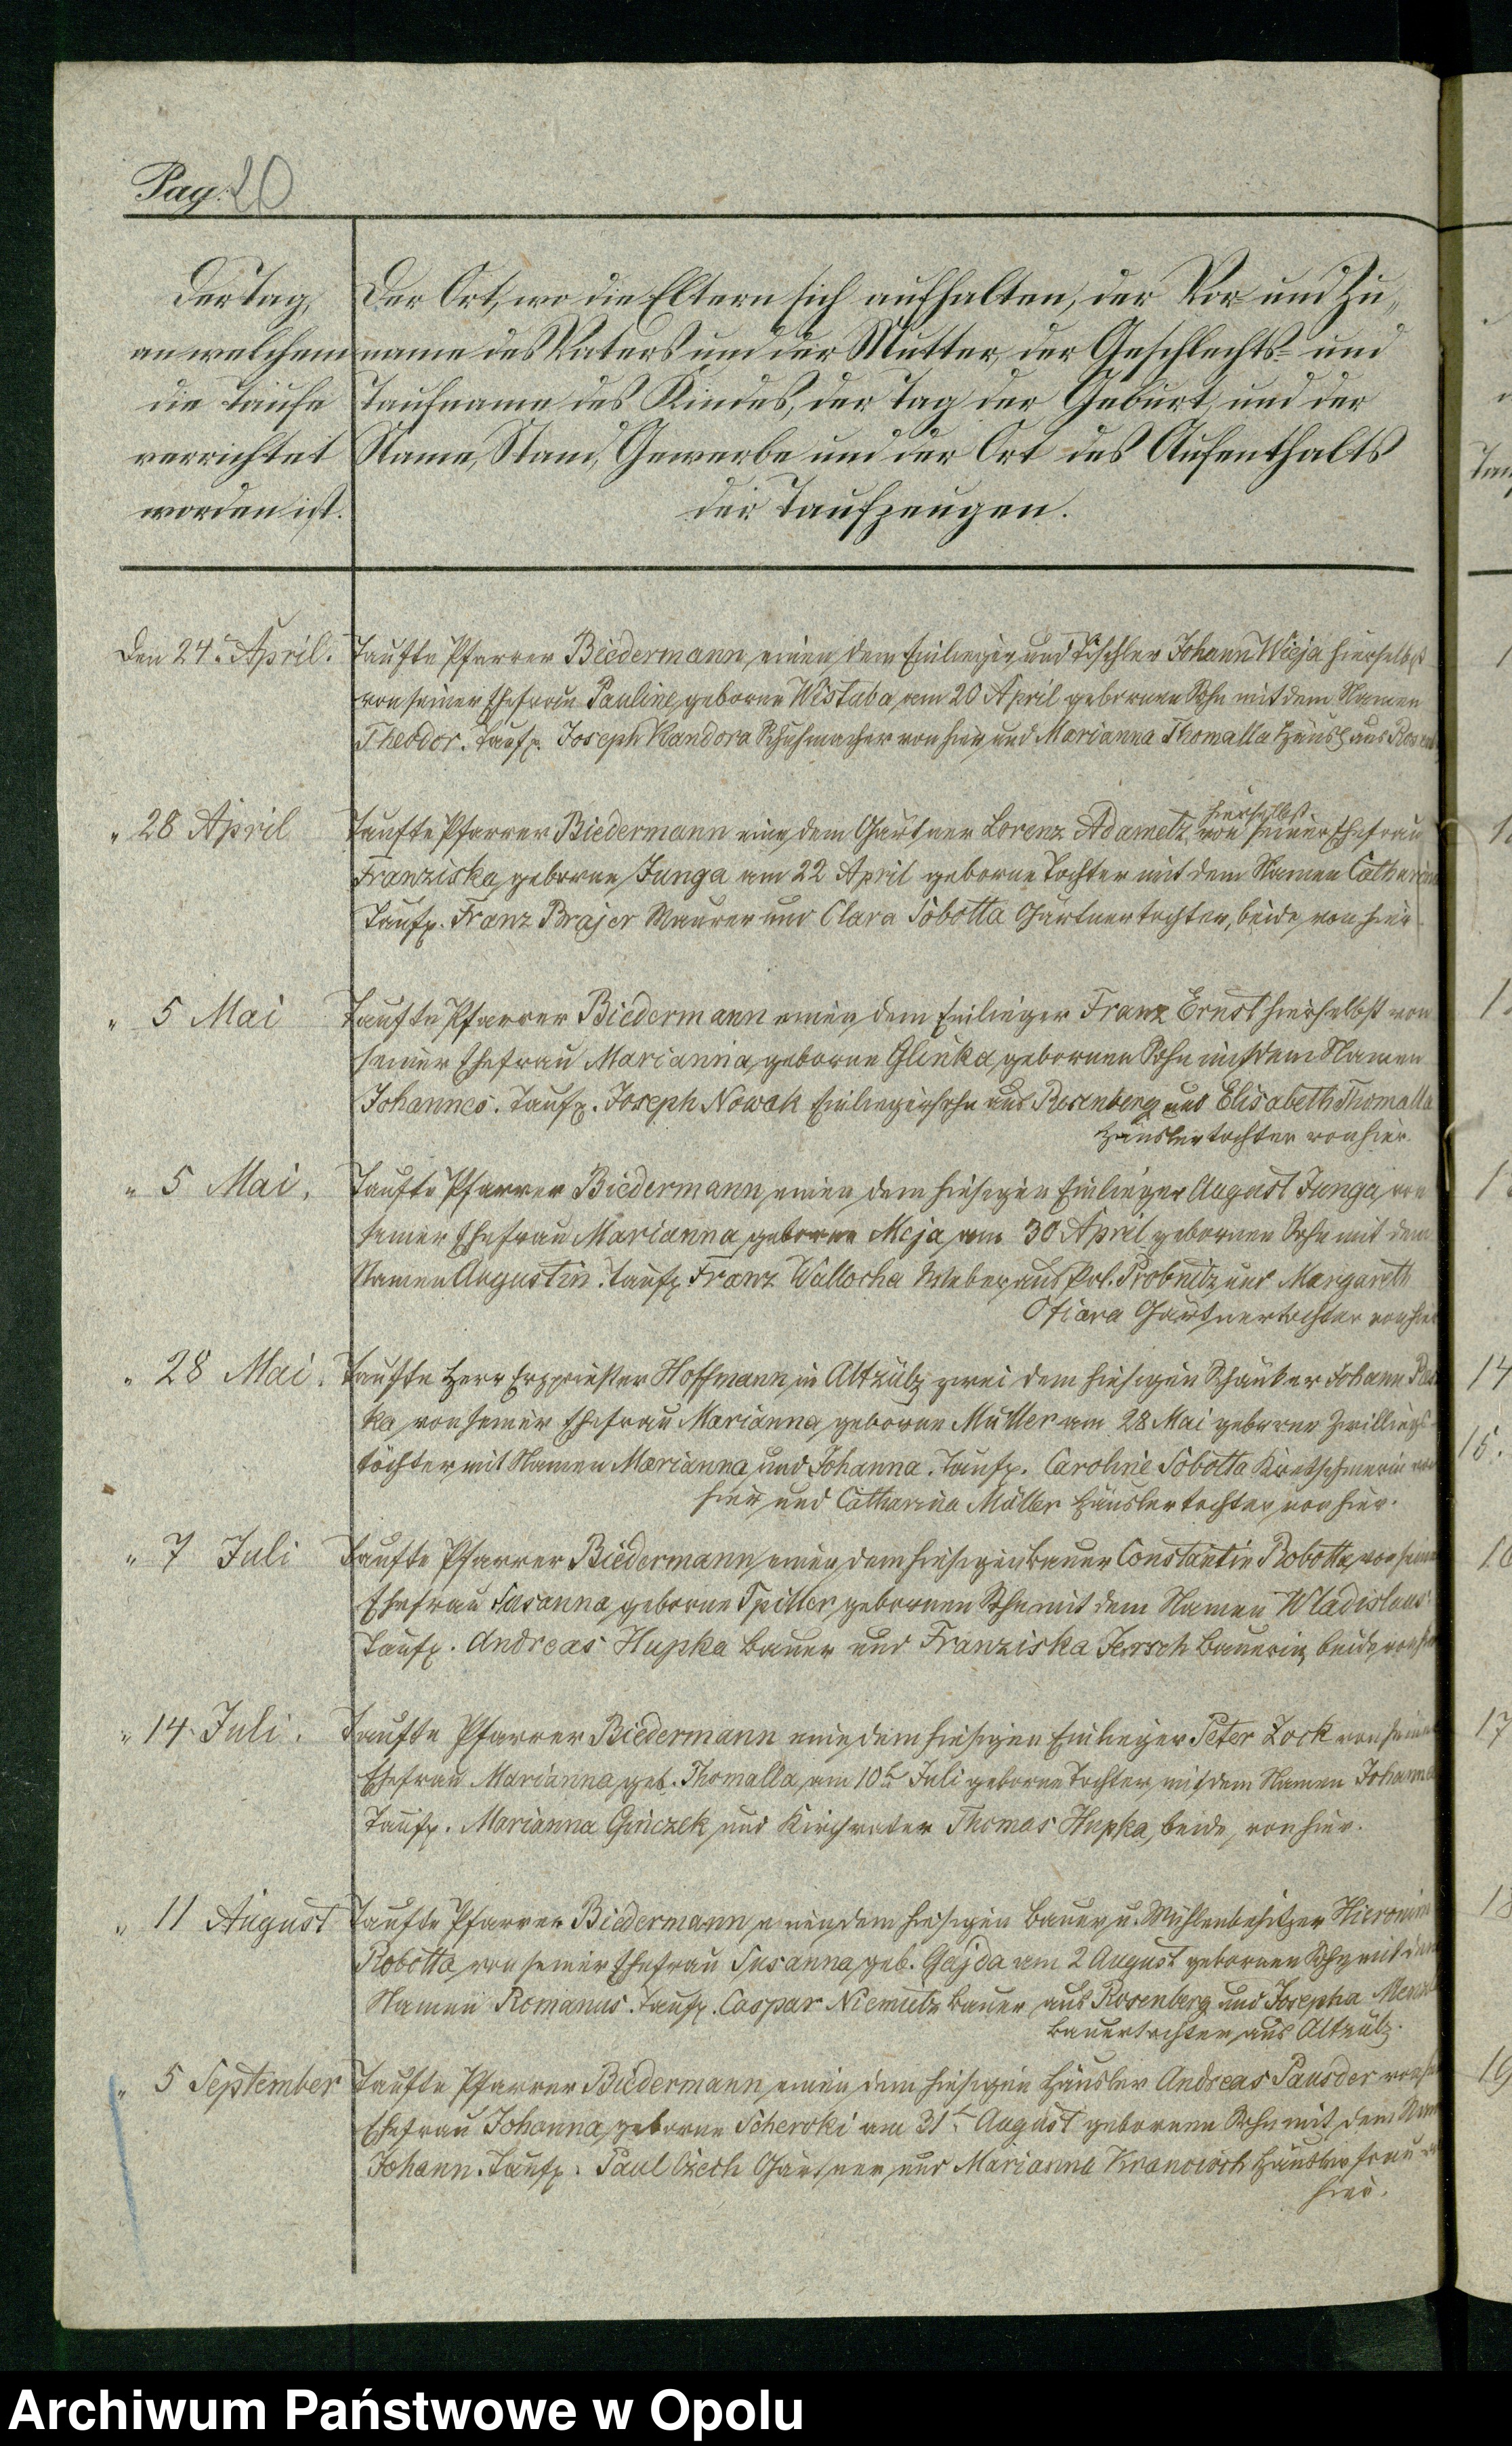 Pag: 20
Der Tag,
an welchem
die Taufe
verrichtet
worden ist.
Der Ort, wo die Eltern sich aufhalten, der Vor- und Zu-
name des Vaters und der Mutter, der Geschlechts- und
Taufname des Kindes, der Tag der Geburt, und der
Name, Stand, Gewerbe und der Ort des Aufenthalts
der Taufzeugen.
Den 24. April.
Taufte Pfarrer Biedermann, einen dem Einlieger und Tischler Johann Wieja hierselbst
von seiner Ehefrau Pauline, geborne Wistuba, am 20 April gebornen Sohn mit dem Namen
Theodor. Taufz. Joseph Kandora Schuhmacher von hier und Marianna Thomalla Häusl. aus
" 28 April
hierselbst
Taufte Pfarrer Biedermann eine dem Gärtner Lorenz Adametz, von seiner Ehefrau
Franziska, geborne Junga am 22 April geborne Tochter mit dem Namen Catharina
Taufz. Franz Brajer Maurer und Clara Sobotta Gärtnertochter, beide von hier.
" 5 Mai
Taufte Pfarrer Biedermann einen dem Einlieger Franz Ernst hierselbst von
seiner Ehefrau Marianna, geborne Glinka, gebornen Sohn mit dem Namen
Johannes. Taufz. Joseph Nowak Einliegersohn aus Rosenberg und Elisabeth Thomalla
Häuslertochter von hier.
" 5 Mai.
Taufte Pfarrer Biedermann, einen dem hiesigen Einlieger August Junga, von
seiner Ehefrau Marianna geborne Meja am 30 April gebornen Sohn mit dem
Namen Augustin. Taufz. Franz Wallocha Weber aus Pol. Probnitz und Margareth
Ofiara Gärtnertochter von hier
" 28 Mai.
Taufte Herr Erzpriester Hoffmann, in Altzülz zwei dem hiesigen Schänker Johann
ka, von seiner Ehefrau Marianna, geborne Müller am 28 Mai geborne Zwillings-
töchter mit Namen Marianna, und Johanna. Taufz. Caroline Sobotta Kretschmerin von
hier, und Catharina Müller Häuslertochter, von hier.
" 7 Juli
Taufte Pfarrer Biedermann, einen dem hiesigen Bauer Constantin Robotta, von seiner
Ehefrau Susanna, geborne Spiller, gebornen Sohn mit dem Namen Wladislaus
Taufz. Andreas Hupka Bauer und Franziska Jersch Bäuerin, beide von hier
" 14. Juli.
Taufte Pfarrer Biedermann eine dem hiesigen Einlieger Peter Zock von seiner
Ehefrau Marianna, geb. Thomalla, am 10t Juli geborne Tochter, mit dem Namen Johanna
Taufz. Marianna Ginczek, und Kirchvater Thomas Hupka, beide, von hier.
" 11 August
Taufte Pfarrer Biedermann, einen dem hiesigen Bauer, u. Mühlenbesitzer
Robotta, von seiner Ehefrau Susanna, geb. Gajda am 2 August gebornen Sohn mit dem
Namen Romanus. Taufz. Caspar Niemietz Bauer aus Rosenberg und Josepha
Bauertochter, aus Altzülz.
" 5 September
Taufte Pfarrer Biedermann, einen dem hiesigen Häusler Andreas Pausder
Ehefrau Johanna, geborne Scheroki am 31t August gebornen Sohn mit dem
Johann. Taufz. Paul Czech Gärtner, und Marianna Häuslerfrau
hier.
14
15.
17
Archiwum Państwowe w Opolu